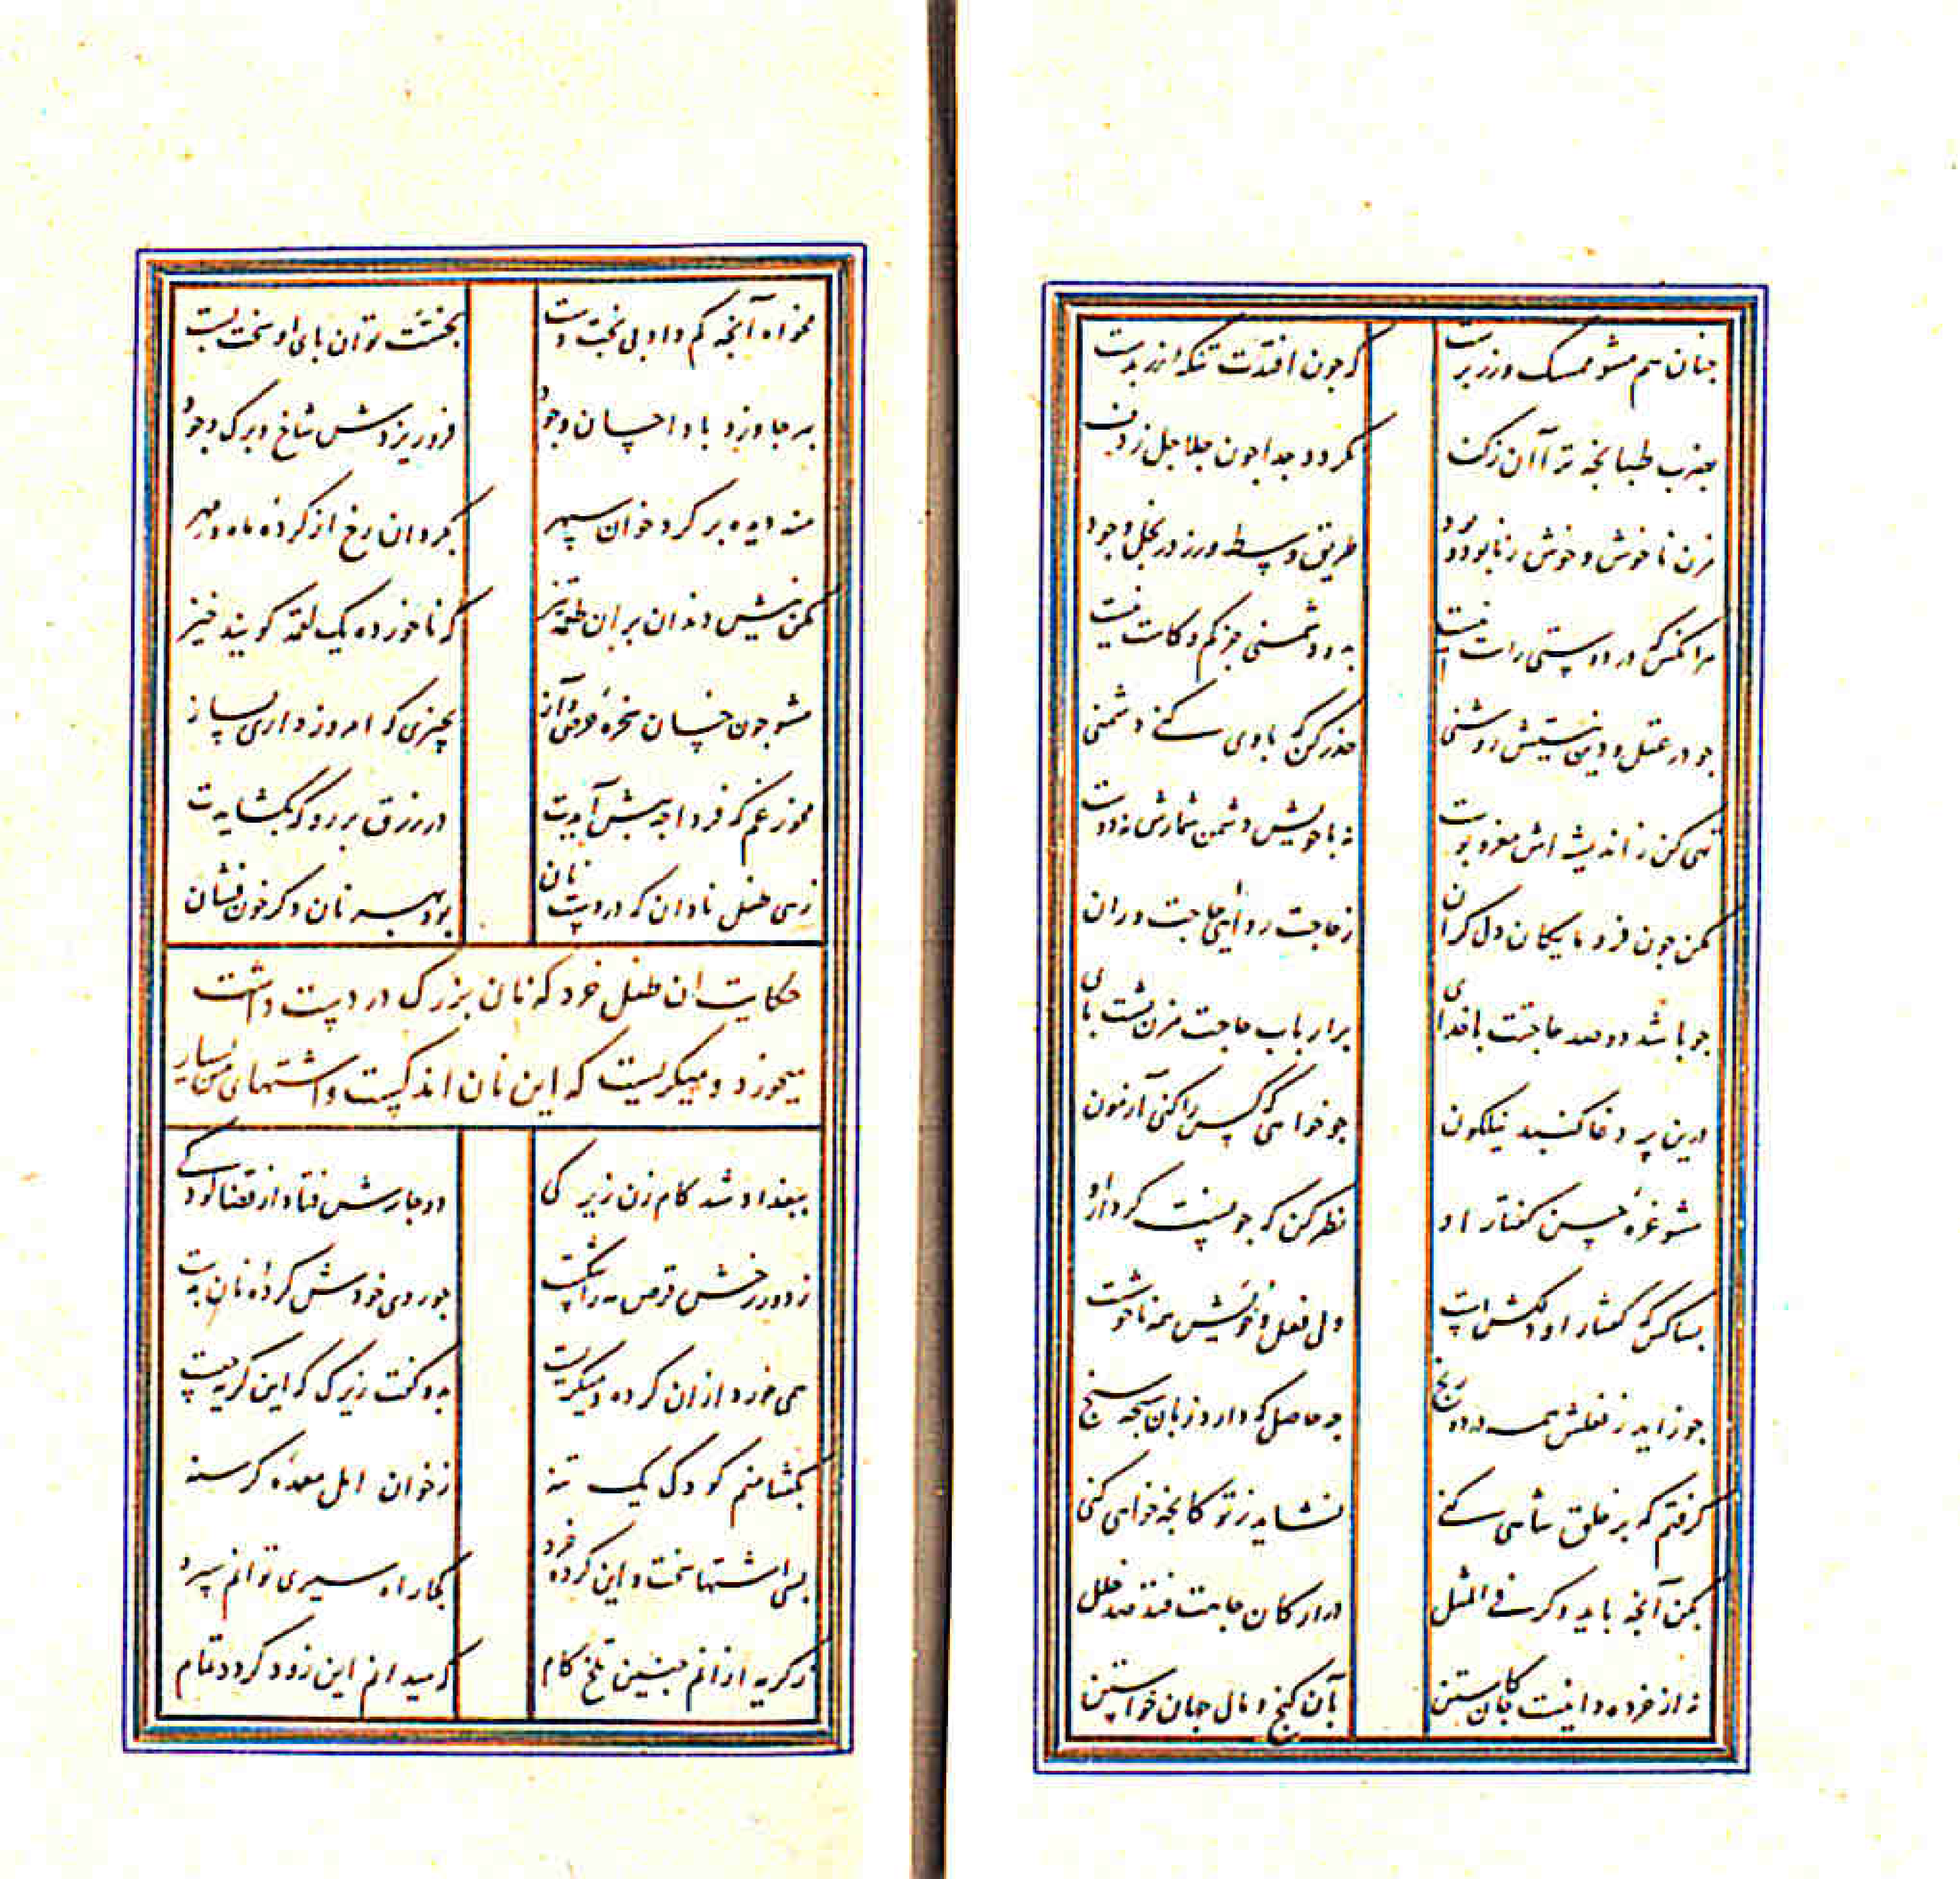 چنان هم مشو ممسک و زرپرست
که چون افتدت تنکه زر بدست
بضرب طبانچه ترا آن ز کف
نکردد جدا چون جلاجل ز دف
مزن ناخوش و خوش ز نابود و بود
طریق وسط ورز در بخل و جود
هر آنکس که در دوستی راست نیست
به و دشمنی جز کم و کاست نیست
چو در عقل و دین نیستش روشنی
حذر کن که با وی کنی دشمنی
تهی کن ز اندیشه اش مغز و پوست
نه با خویش دشمن شمارش نه دوست
مکن چون فرومایکان دل کران
ز حاجت روایی حاجت وران
چو باشد دو صد حاجتت با خدای
بر ارباب حاجت مزن پشت پای
درین پر دغا کنبد نیلکون
چو خواهی که کس را کنی آزمون
مشو غره حسن کفتار او
نظر کن که چونست کردار او
بسا کس که کفتار او دلکش است
ولی فعل و خویش همه ناخوشست
چو زاید ز فعلش همه درد و رنج
چه حاصل که دارد زبان سخنج
کرفتم که بر خلق شاهی کنی
نشاید ز تو کانچه خواهی کنی
مکن آنچه باید وکر فی المثل
در ارکان جاهت فتد صد خلل
نه از خرده دانیست جان کاستن
بآن کنج و مال جهان خواستن
مخواه آنچه کم داد بی بخت دست
بخشت توان پای او سخت بست
بهر جا وزد باد احسان وجود
فرو ریزدش شاخ و برک وجود
منه دیده بر کرد خوان سپهر
بکردان رخ از کرده ماه و مهر
مکن نیش دندان بر آن طعمه تیز
که ناخورده یک لقمه کویند خیز
مشو چون خسان سخره حرص و آز
بچیزی که امروز داری بساز
مخور غم که فردا چه پیش آیدت
در رزق بر رو که بکشایدت
زهی طفل نادان که در دست نان
بود بهر نان دکر خون فشان
حکایت ان طفل خرد که نان بزرک در دست داشت
میخورد و میکریست که این نان اندکست و اشتهای من بسیار
ببغداد شد کام زن زیرکی
دوچارش فتاد از قضا کودکی
ز دور رخش قرص مه را شکست
چو روی خودش کرده نان بدست
همی خورد از ان کرده و میکریست
بدو کفت زیرک که این کریه چیست
بکفتا منم کودکی یک تنه
ز خوان امل معده کرسنه
بسی اشتها سخت و این کرده خرد
کجا راه سیری توانم سپرد
ز کریه از انم چنین تلخ کام
که میدانم این زود کردد تمام